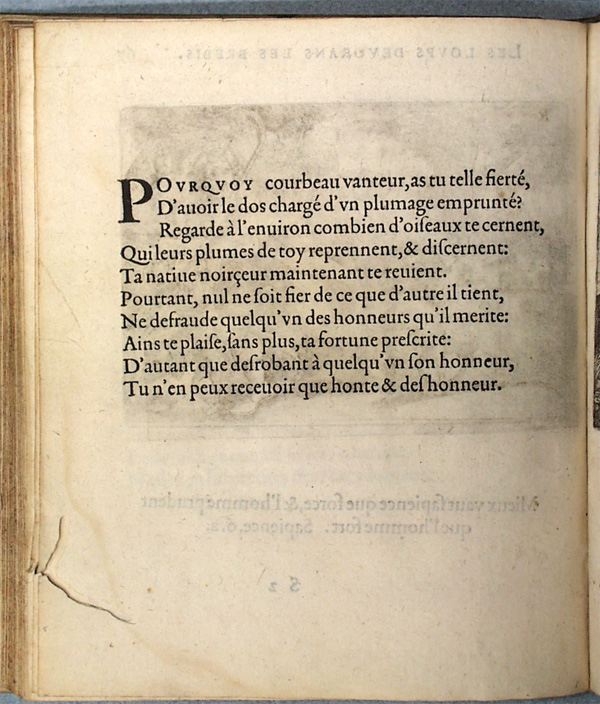 POVRQVOY courbeau vanteur, as tu telle fierté,
D'auoir le dos chargé d'vn plumage emprunté?
Regarde à l'enuiron combien d'oiſeaux te cernent,
Qui leurs plumes de toy reprennent, & diſcernent:
Ta natiue noirçeur maintenant te reuient.
Pourtant, nul ne ſoit fier de ce que d'autre il tient,
Ne defraude quelqu'vn des honneurs qu'il merite:
Ains te plaiſe, ſans plus, ta fortune preſcrite:
D'autant que desrobant à quelqu'vn ſon honneur,
Tu n'en peux receuoir que honte & deſhonneur.